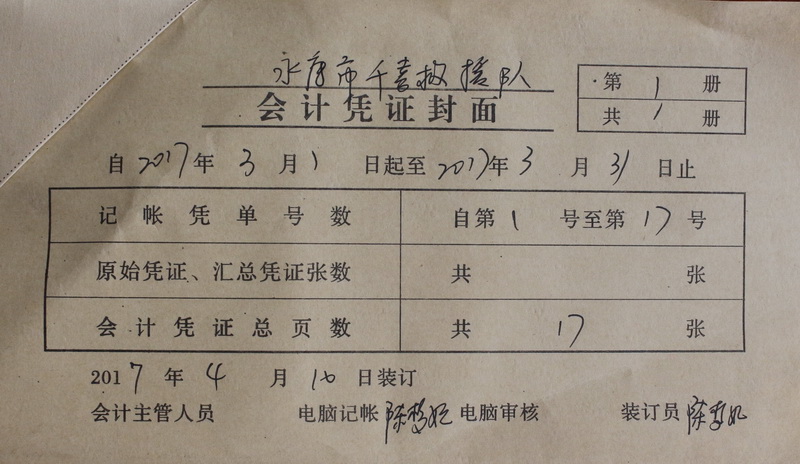 永康市千喜救援队
会计凭证封面
第1册
共1册
自2017年3月1日起至2017年3月31日止
记帐凭单号数 自第1号至第17号
原始凭证、汇总凭证张数 共 张
会计凭证总页数 共17张
2017年4月10日装订
会计主管人员 电脑记帐 陈 电脑审核 装订员 陈